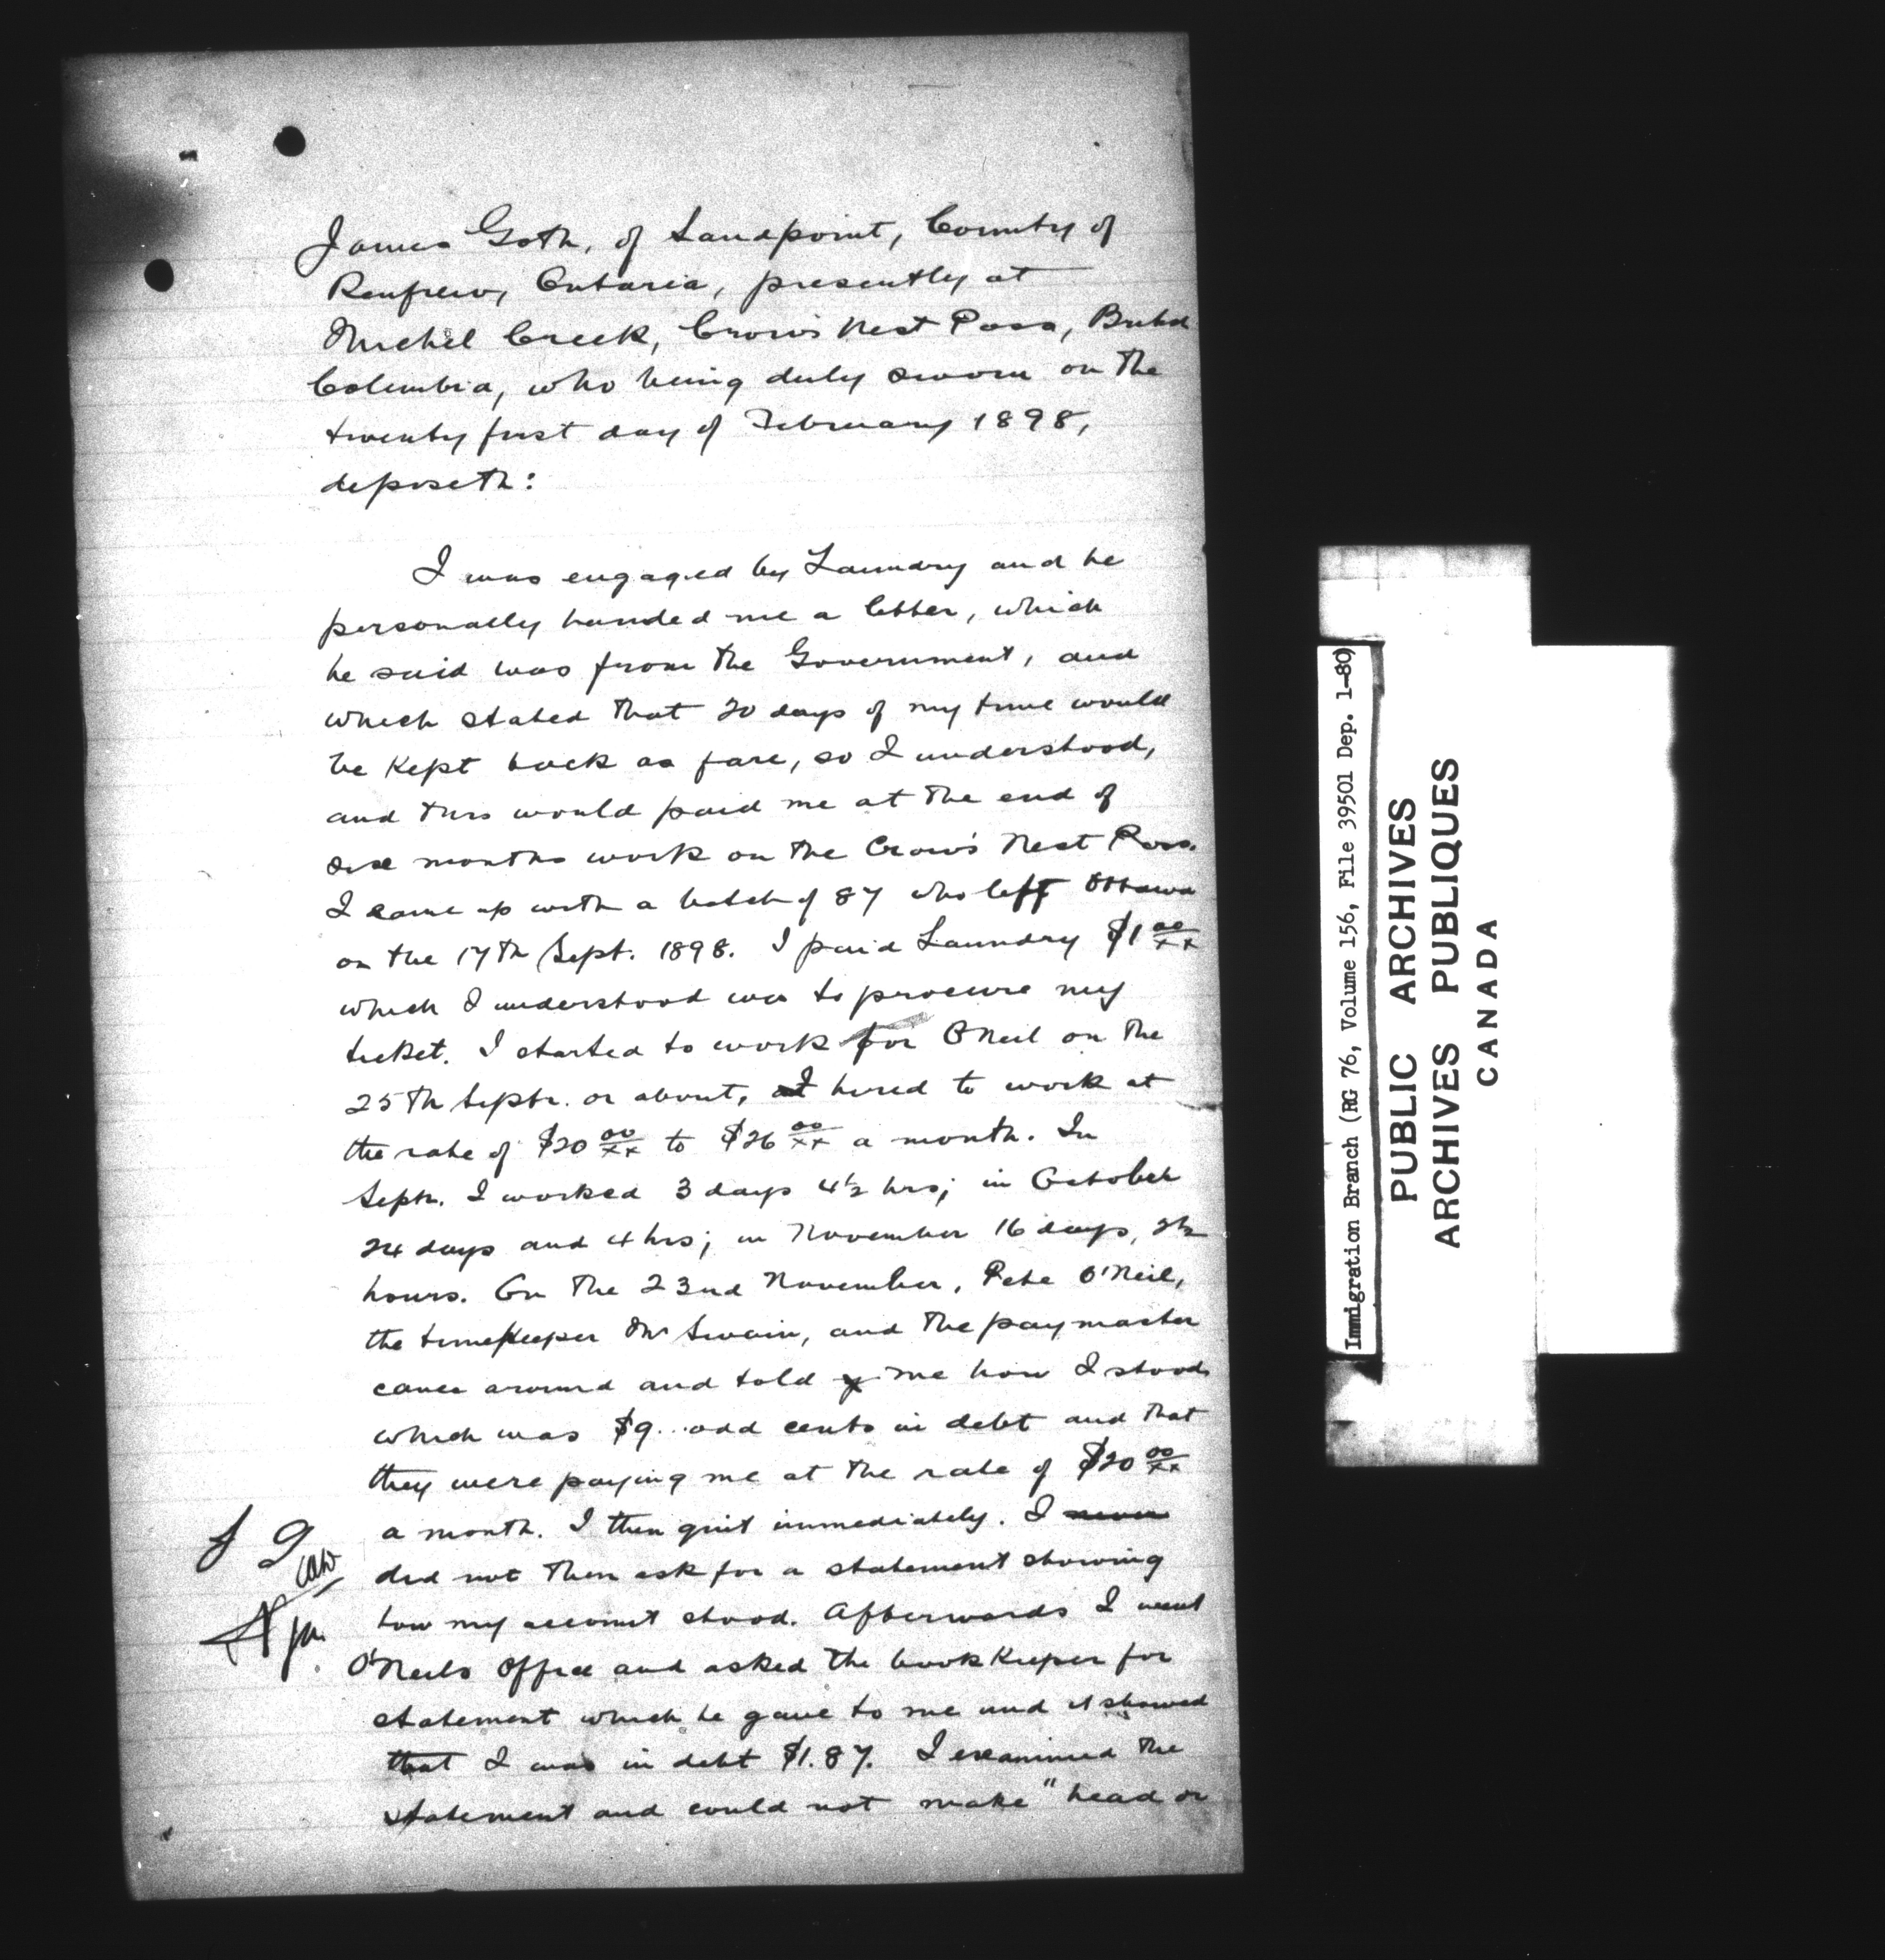 James Goth, of Sandpoint, County of
Renfrew, Ontario, presently at
Michel Creek, Crow's Nest Pass, British
Columbia, who being duly sworn on the
twenty first day of February 1898,
deposeth:
I was engaged by Laundry and he
personally handed me a letter, which
he said was from the Government, and
which stated that 20 days of my time would
be kept back as fare, so I understood,
and this would paid me at the end of
six months work on the Crow's Nest Pass.
I came up with a batch of 87 who left Ottawa
on the 17th Sept. 1898. I paid Laundry $1 00/xx
which I understood was to procure my
ticket. I started to work for O'Neil on the
25th Septr. or about, I hired to work at
the rate of $20 00/xx to $26 00/xx a month. In
Septr. I worked 3 days 4½ hrs; in October
24 days and 4 hrs; in November 16 days, 2½
hours. On the 23nd November, Pete O'Neil,
the timekeeper Mr Swain, and the paymaster
came around and told me how I stood
which was $9... odd cents in debt and that
they were paying me at the rate of $20 00/xx
a month. I then quit immediately. I never
did not then ask for a statement showing
how my account stood. Afterwards I went
O'Neils office and asked the bookkeeper for
statement which he gave to me and it showed
that I was in debt $1.87. I examined the
statement and could not make "head or
Immigration Branch (RG 76, Volume 156, File 39501 Dep. 1-80)
PUBLIC ARCHIVES
ARCHIVES PUBLIQUES
CANADA